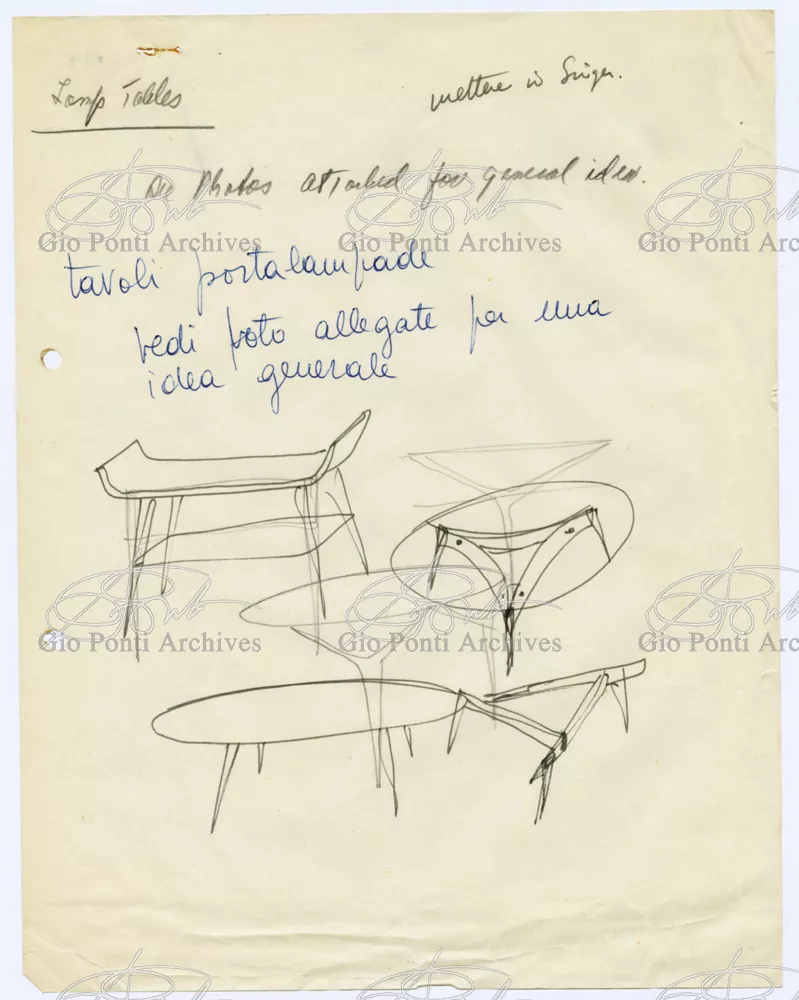 Lamp Tables
mettere in Singer.
See Photos attached for general idea.
tavoli portalampade
vedi foto allegate per una
idea generale
Gio Ponti Archives
Gio Ponti Archives
Gio Ponti Arc
Gio Ponti Archives
Gio Ponti Archives
Gio Ponti Arc